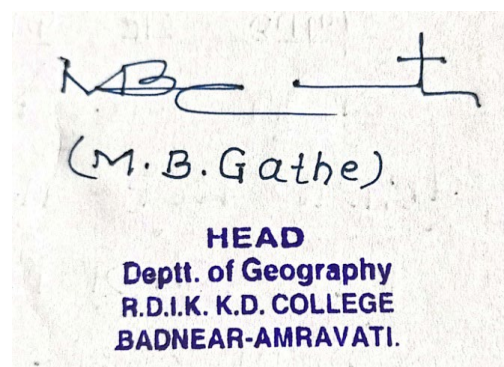 (M.B.Gathe)
HEAD
Deptt. of Geography
R.D.I.K. K.D. COLLEGE
BADNEAR-AMRAVATI.